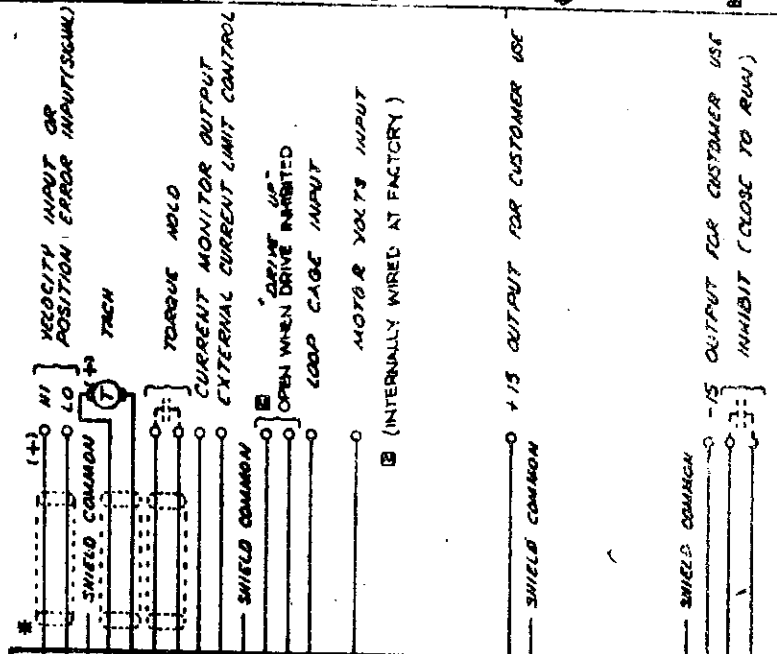 *
(+)
HI
LO
VELOCITY INPUT OR
POSITION ERROR INPUT (SIGNAL)
SHIELD COMMON
(+)
T
TACH
TORQUE HOLD
CURRENT MONITOR OUTPUT
EXTERNAL CURRENT LIMIT CONTROL
SHIELD COMMON
2
"DRIVE UP"
OPEN WHEN DRIVE INHIBITED
LOOP CAGE INPUT
MOTOR VOLTS INPUT
2 (INTERNALLY WIRED AT FACTORY)
+15 OUTPUT FOR CUSTOMER USE
SHIELD COMMON
SHIELD COMMON
-15 OUTPUT FOR CUSTOMER USE
INHIBIT (CLOSE TO RUN)